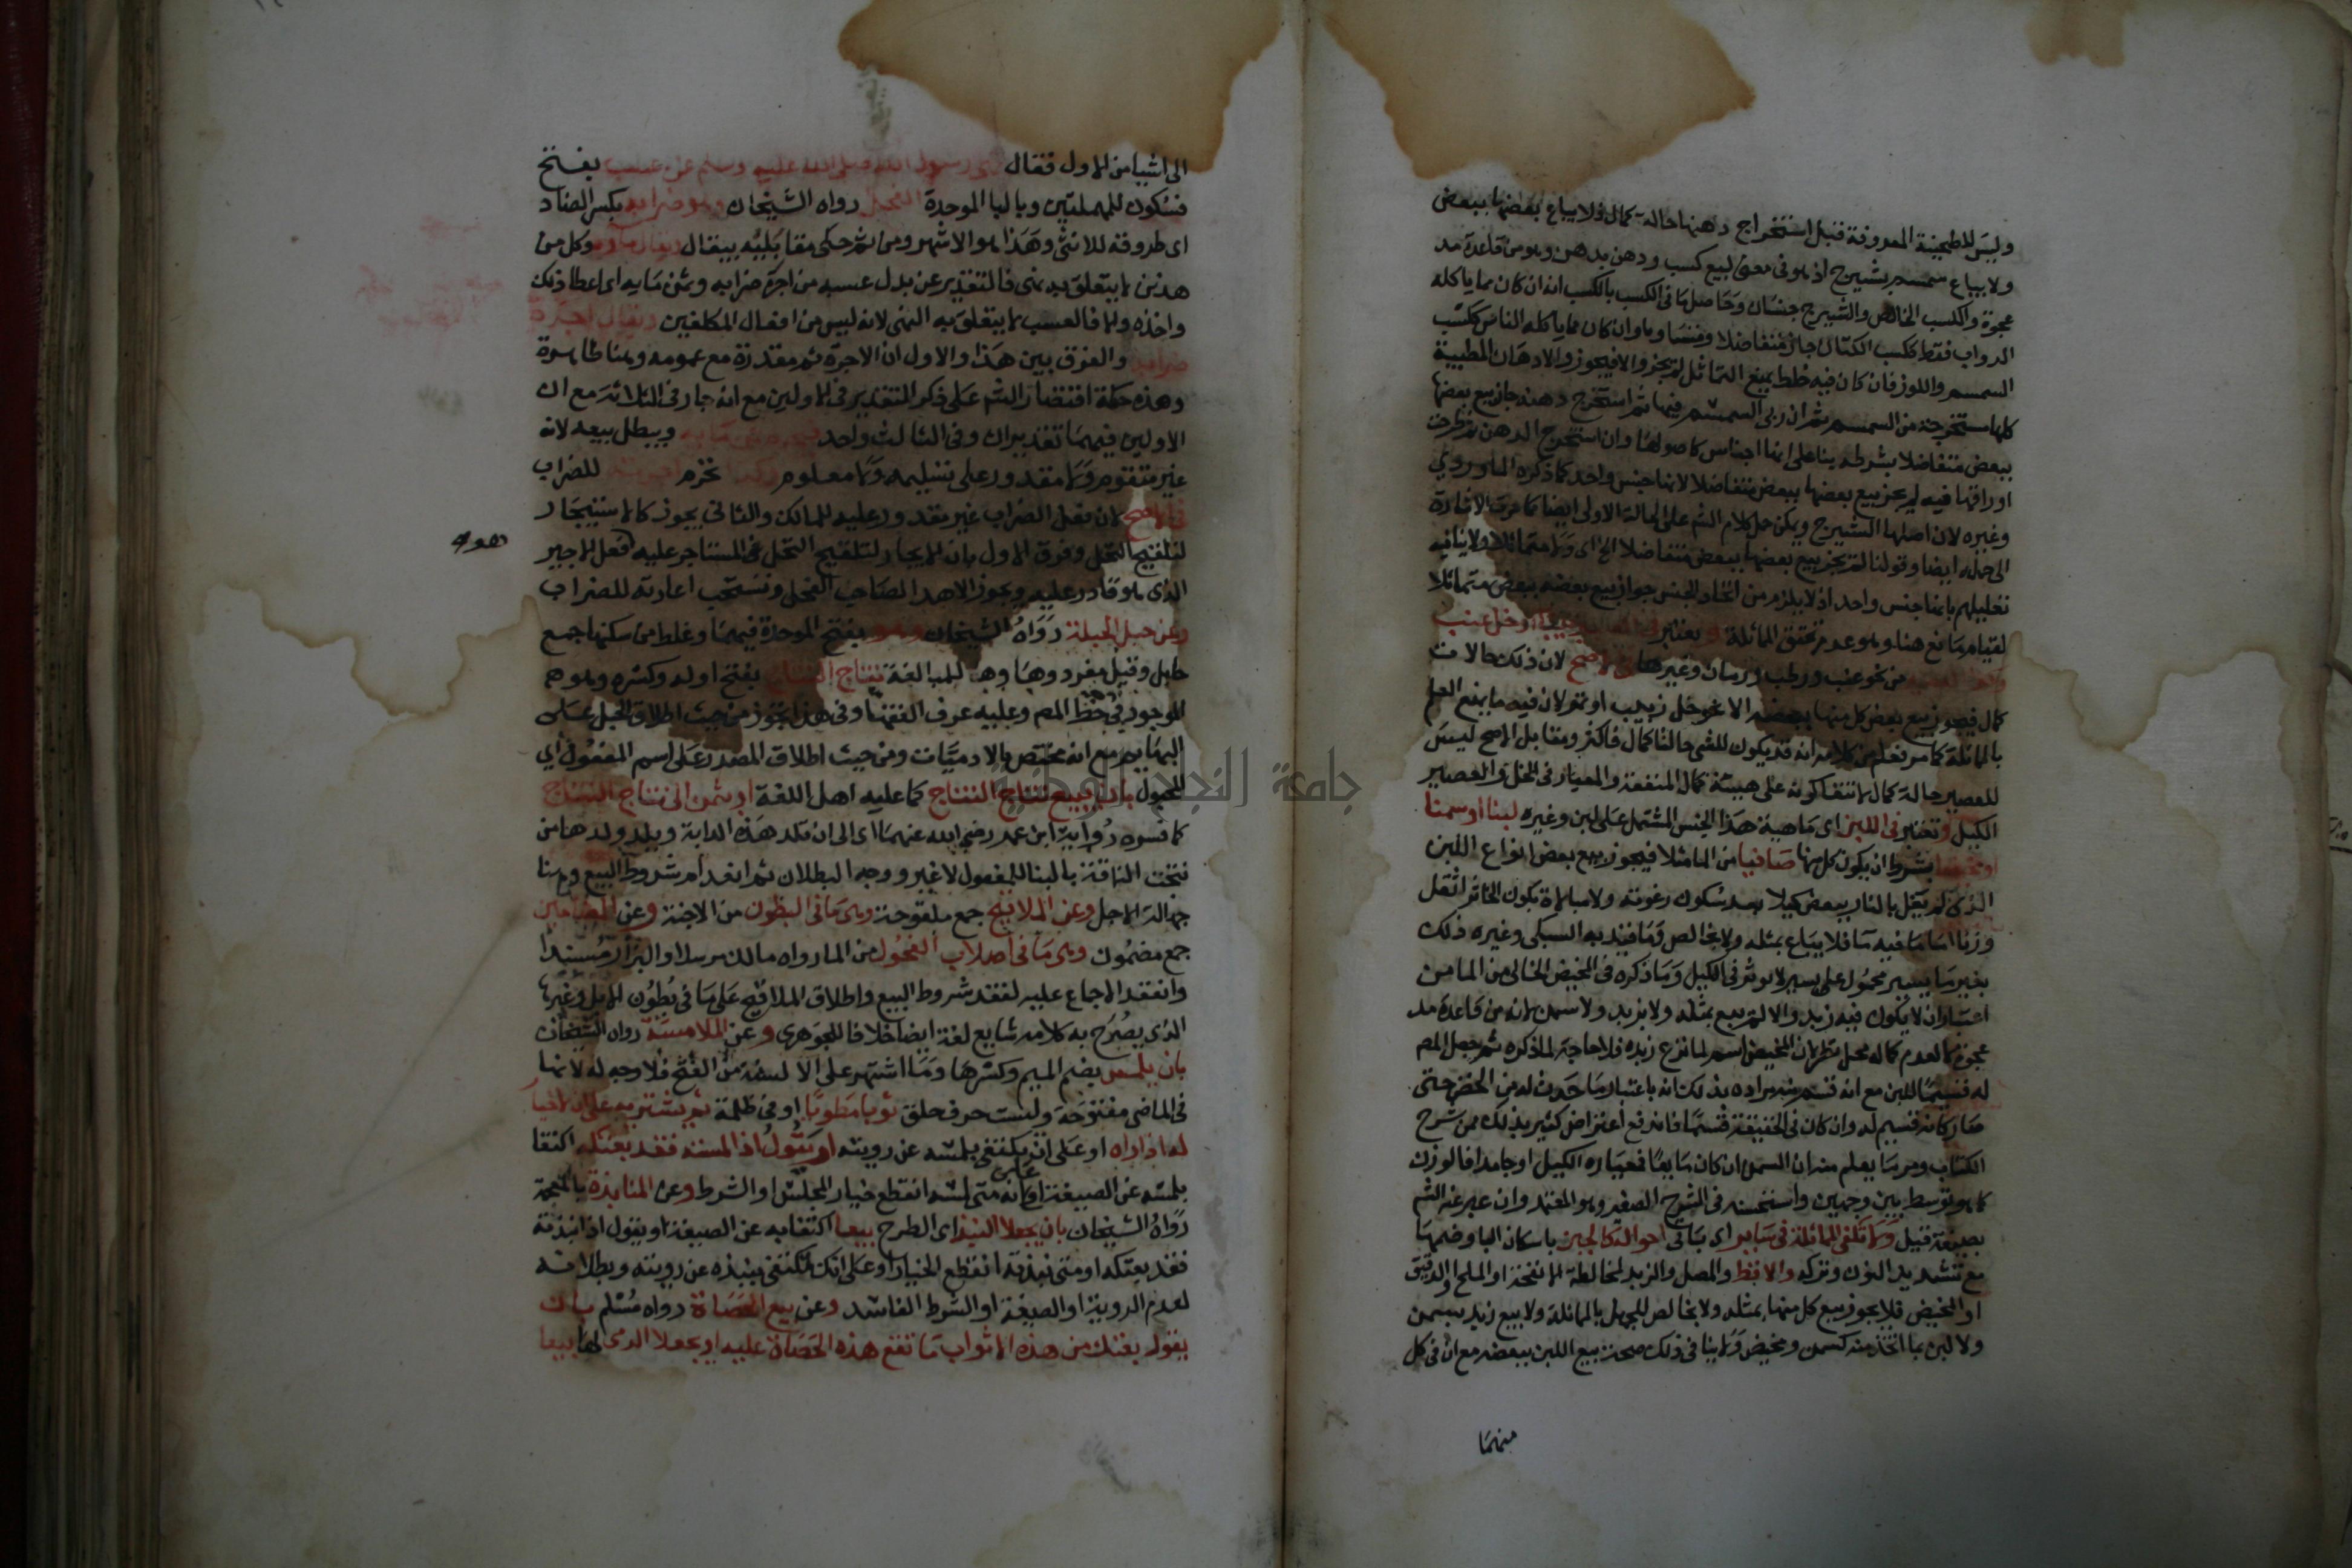 وليس للطحينة المعروفة قبل استخراج دهنها حالة كمال فلا يباع بعضها ببعض
ولا يباع سمسم بشيرج اذ هو في معنى بيع كسب ودهن بدهن وهو من قاعدة مد
عجوة والكسب الخالص والشيرج جنسان وحاصل ما في الكسب بالكسب انه ان كان مما ياكله
الدواب فقط ككسب الكتان جاز متفاضلا وان كان مما ياكله الناس ككسب
السمسم واللوز فان كان فيه خلط يمنع التماثل لم يجز والا فيجوز والادهان المطيبة
كلها مستخرجة من السمسم ثم ان ربى السمسم فيها ثم استخرج دهنه جاز بيع بعضها
ببعض متفاضلا بشرطه بنا على انها اجناس كاصولها وان استخرج الدهن ثم طرحت
اوراقها فيه لم يجز بيع بعضها ببعض متفاضلا لانها جنس واحد كما ذكره الماوردي
وغيره لان اصلها الشيرج ويمكن حمل كلام الشم على الحالة الاولى ايضا كما مرت الاشارة
الى حمله ايضا وقولنا لم يجز بيع بعضها ببعض متفاضلا الخ اى ولا متماثلا ولا ينافيه
تعليلهم بانها جنس واحد اذ لا يلزم من اتحاد الجنس جواز بيع بعضه ببعض متماثلا
لقيام مانع هنا وهو عدم تحقق المماثلة
من نحو عنب ورطب ورمان وغيرها في الاصح لان ذلك حالات
كمال فيجوز بيع بعض كل منها ببعضه الا نحو خل زبيب او تمر لان فيه ما يمنع العلم
بالمماثلة كما مر فعلم من كلامه انه قد يكون للشى حالتا كمال فاكثر ومقابل الاصح ليس
للعصير حالة كمال لانتفا كونه على هيئة كمال المنفعة والمعيار في الخل والعصير
الكيل وتعتبر في اللبن اى ماهية هذا الجنس المشتمل على لبن وغيره لبنا او سمنا
او مخيضا بشرط ان يكون كل منها صافيا من الما مثلا فيجوز بيع بعض انواع اللبن
الذى لم يغل بالنار ببعض كيلا بعد سكون رغوته ولا مبالاة بكون الخاثر اثقل
وزنا اما ما فيه ما فلا يباع بمثله ولا بخالص وما قيد به السبكى وغيره ذلك
بغير ما يسير محمول على يسير لا يؤثر في الكيل وما ذكره في المخيض الخالى من الما من
اعتبار ان لا يكون فيه زبد والا لم يبع بمثله ولا بزبد ولا سمن لانه من قاعدة مد
عجوة لا لعدم كماله محل نظر لان المخيض اسم لما نزع زبده فلا حاجة لما ذكره ثم جعل المص
له قسيما للبن مع انه قسم منه مراده بذلك انه باعتبار ما حدث له من المخض حتى
صار كانه قسيم له وان كان في الحقيقة قسما فاندفع اعتراض كثير بذلك ممن شرح
الكتاب ومر ما يعلم منه ان السمن ان كان مايعا فمعياره الكيل او جامدا فالوزن
كما هو توسط بين وجهين واستحسنه في الشرح الصغير وهو المعتمد وان عبر عنه الشم
بصيغة قيل ولا تكفى المماثلة في ساير اى باقى احواله كالجبن باسكان البا وضمها
مع تشديد النون وتركه والاقط والمصل والزبد لمخالطة الانفحة او الملح او الدقيق
او المخيض فلا يجوز بيع كل منها بمثله ولا بخالص للجهل بالمماثلة ولا بيع زبد بسمن
ولا لبن بما اتخذ منه كسمن ومخيض ولا ينافى ذلك صحة بيع اللبن ببعضه مع ان في كل
منهما
الى اشيا من الاول فقال نهى رسول الله صلى الله عليه وسلم عن عسب بفتح
فسكون للمهملتين وبالبا الموحدة الفحل رواه الشيخان وهو ضرابه بكسر الضاد
اى طروقه للانثى وهذا هو الاشهر ومن ثم حكى مقابليه بيقال ويقال ماوه وكل من
هذين لا يتعلق به نهى فالتقدير عن بدل عسبه من اجرة ضرابه وثمن مايه اى اعطا ذلك
واخذه والا فالعسب لا يتعلق به النهى لانه ليس من افعال المكلفين ويقال اجرة
ضرابه والفرق بين هذا والاول ان الاجرة ثم مقدرة مع عمومه وهنا ظاهرة
وهذه حكمة اقتصار الشم على ذكر التقدير في الاولين مع انه جار في الثلاثة مع ان
الاولين فيهما تقديران وفي الثالث واحد فيحرم ثمن مايه ويبطل بيعه لانه
غير متقوم ولا مقدور على تسليمه ولا معلوم وكذا تحرم اجرته للضراب
في الاصح لان فعل الضراب غير مقدور عليه للمالك والثانى يجوز كالاستيجار
لتلقيح النخل وفرق الاول بان الايجار لتلقيح النخل في المستاجر عليه فعل الاجير
الذى هو قادر عليه ويجوز الاهدا لصاحب الفحل وتستحب اعارته للضراب
وعن حبل الحبلة رواه الشيخان وهو بفتح الموحدة فيهما وغلط من سكنها جمع
حابل وقيل مفرد وهاوه للمبالغة نتاج النتاج بفتح اوله وكسره وهو
الموجود في خط المص وعليه عرف الفقها وفي هذا تجوز من حيث اطلاق الحبل على
البهايم مع انه مختص بالادميات ومن حيث اطلاق المصدر على اسم المفعول أي
المحبول بان يبيع نتاج النتاج كما عليه اهل اللغة او بثمن الى نتاج النتاج
كما فسره رواية ابن عمر رضي الله عنهما اى الى ان تلد هذه الدابة ويلد ولدها من
نتجت الناقة بالبنا للمفعول لا غير ووجه البطلان ثم انعدام شروط البيع وهنا
جهالة الاجل وعن الملاقيح جمع ملقوحة وهى ما في البطون من الاجنة وعن المضامين
جمع مضمون وهى ما في اصلاب الفحول من الما رواه مالك مرسلا والبزار مسندا
وانعقد الاجماع عليه لفقد شروط البيع واطلاق الملاقيح على ما في بطون الابل وغيرها
الذى يصرح به كلامه شايع لغة ايضا خلافا للجوهرى وعن الملامسة رواه الشيخان
بان يلمس بضم الميم وكسرها وما اشتهر على الالسنة من الفتح فلا وجه له لانها
في الماضى مفتوحة وليست حرف حلق ثوبا مطويا او في ظلمة ثم يشتريه على ان لا خيار
له اذا راه او على ان يكتفى بلمسه عن رويته او يقول اذا لمسته فقد بعتكه اكتفا
بلمسه عن الصيغة او على انه متى لمسه انقطع خيار المجلس او الشرط وعن المنابذة بالمعجمة
رواه الشيخان بان يجعلا النبذ اى الطرح بيعا اكتفا به عن الصيغة او يقول اذا نبذته
فقد بعتكه او متى نبذته انقطع الخيار او على انك تكتفى بنبذه عن رويته وبطلانه
لعدم الروية او الصيغة او الشرط الفاسد وعن بيع الحصاة رواه مسلم بان
يقول بعتك من هذه الاثواب ما تقع هذه الحصاة عليه او يجعلا الرمى لها بيعا
جامعة النجاح الوطنية